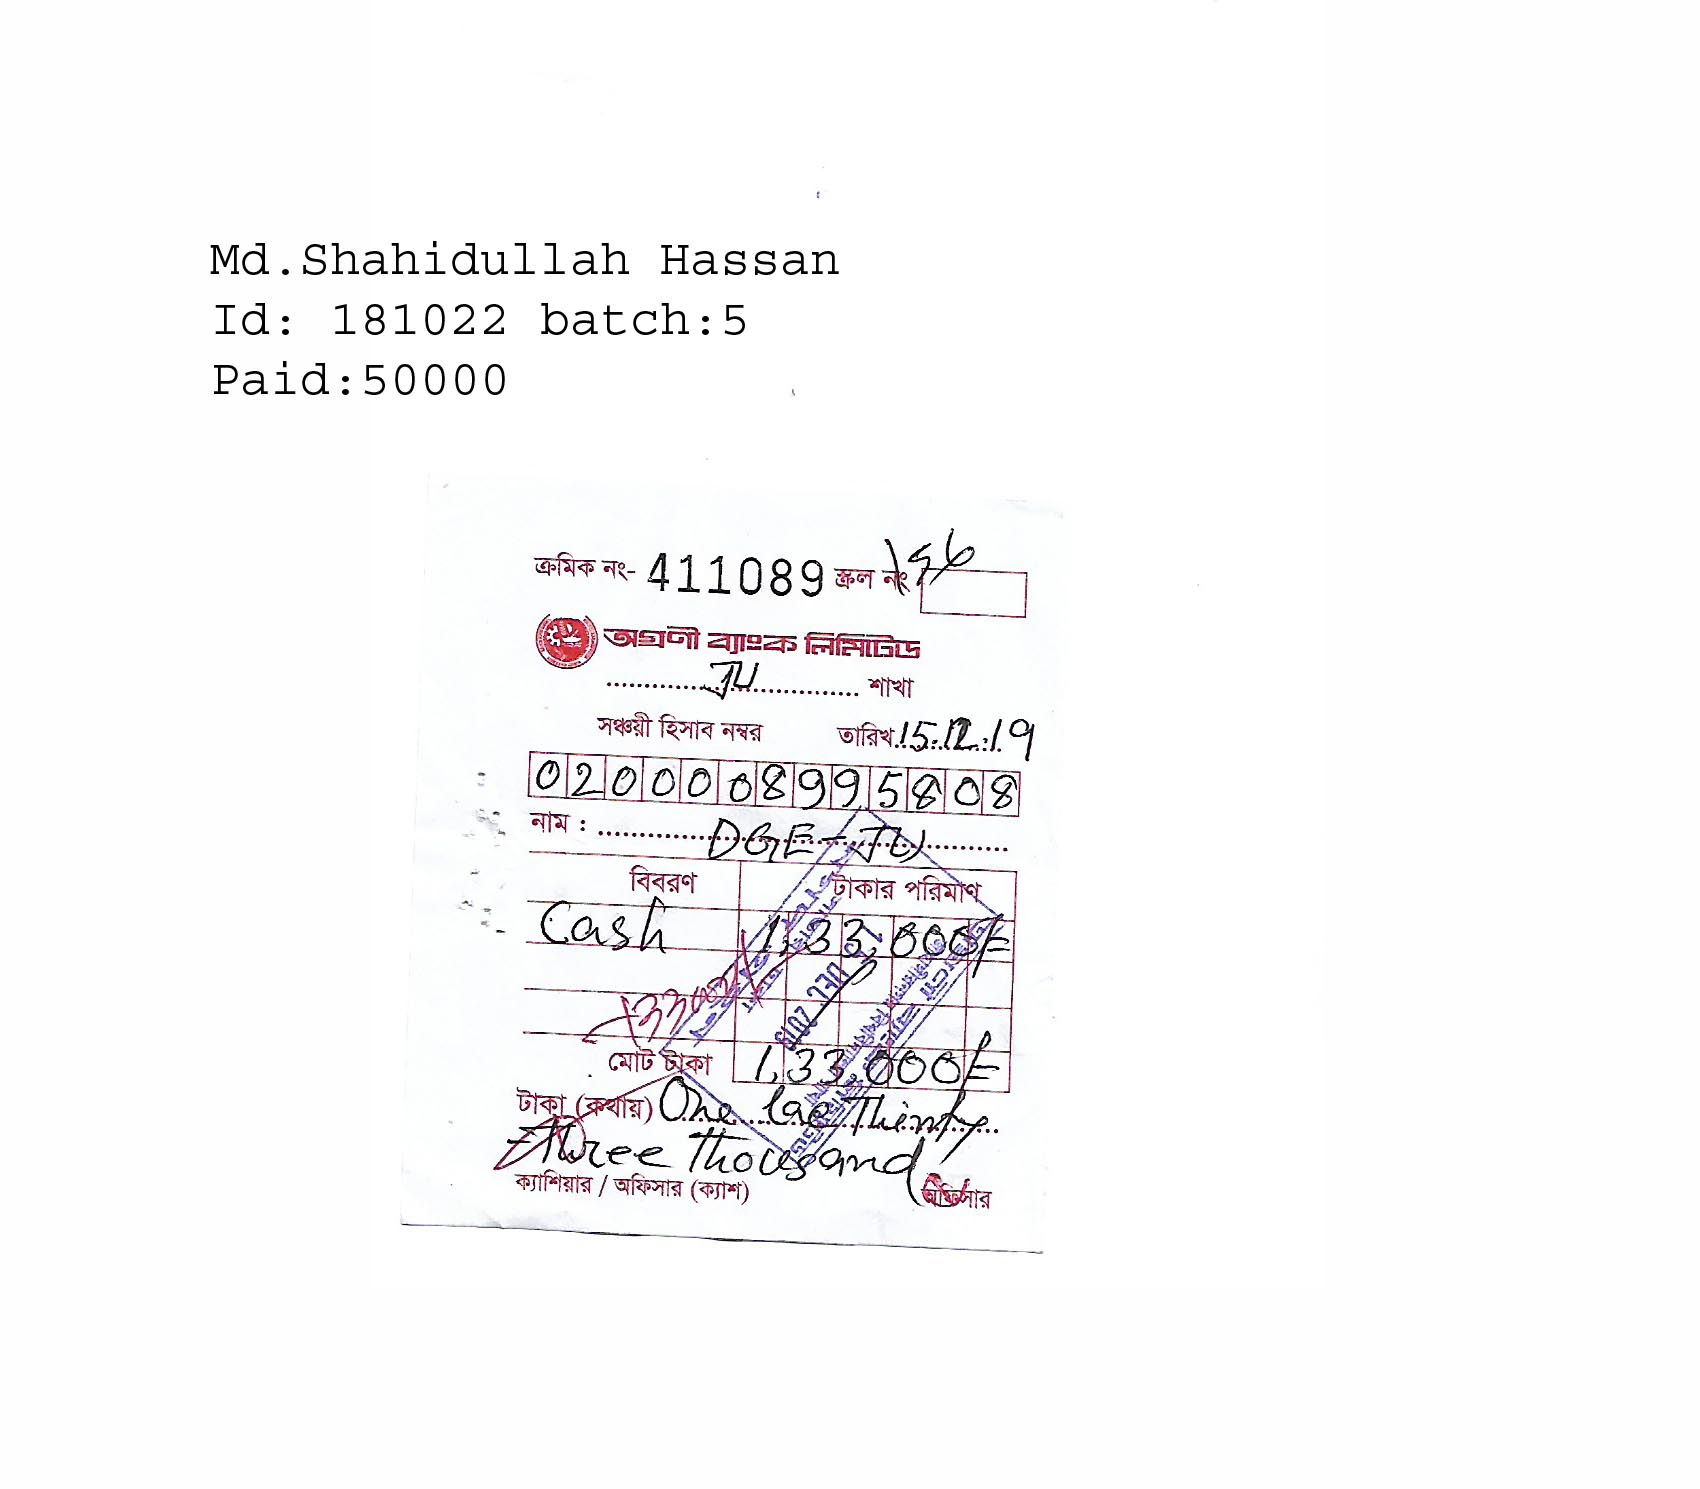 Md.Shahidullah Hassan
Id: 181022 batch:5
Paid:50000
ক্রমিক নং- 411089 স্ক্রল নং
অগ্রণী ব্যাংক লিমিটেড
JU শাখা
সঞ্চয়ী হিসাব নম্বর তারিখ 15.12.19
0200008995808
নাম : DGE-JU
বিবরণ টাকার পরিমাণ
Cash 1,33,000/=
133000/
DEC 2019
মোট টাকা 1,33,000/=
টাকা (কথায়) One lac Thirty
Three Thousand
ক্যাশিয়ার / অফিসার (ক্যাশ) অফিসার